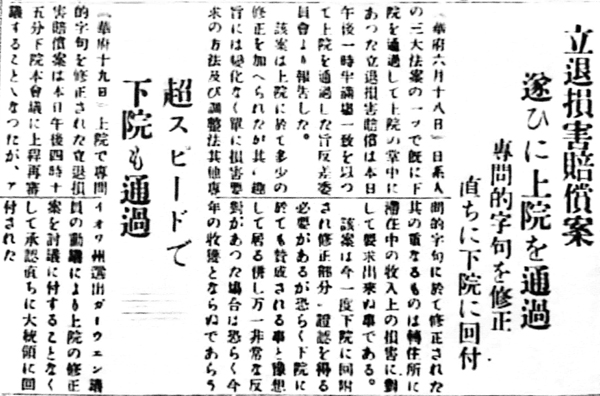 立退損害賠償案
遂ひに上院を通過
専門的字句を修正
直ちに下院に回付
『華府六月十八日』日系人
の三大法案の一ツで既に下
院を通過して上院の掌中に
あつた立退損害賠償は本日
午後一時半満場一致を以つ
て上院を通過した旨反差委
員會より報告した。
該案は上院に於て多少の
修正を加へられたが其ノ趣
旨には變化なく單に損害要
求の方法及び調整法其他専
門的字句に於て修正された
其の重なるものは轉住所に
滞在中の收入上の損害に對
して要求出來ぬ事である。
該案は今一度下院に回附
され修正部分ノ證認を得る
必要があるが恐らく下院に
於ても賛成される事と像想
して居る併し万一非常な反
對があつた場合は恐らく今
年の收獲とならぬであらう
超スピードで
下院も通過
『華府十九日』上院で専門
的字句を修正された立退損
害賠償案は本日午後四時十
五分下院本會議に上程再審
議することゝなつたが、ア
イオワ州選出ガーウエン議
員の動議により上院の修正
案を討議に付することなく
して承認直ちに大統領に回
付された